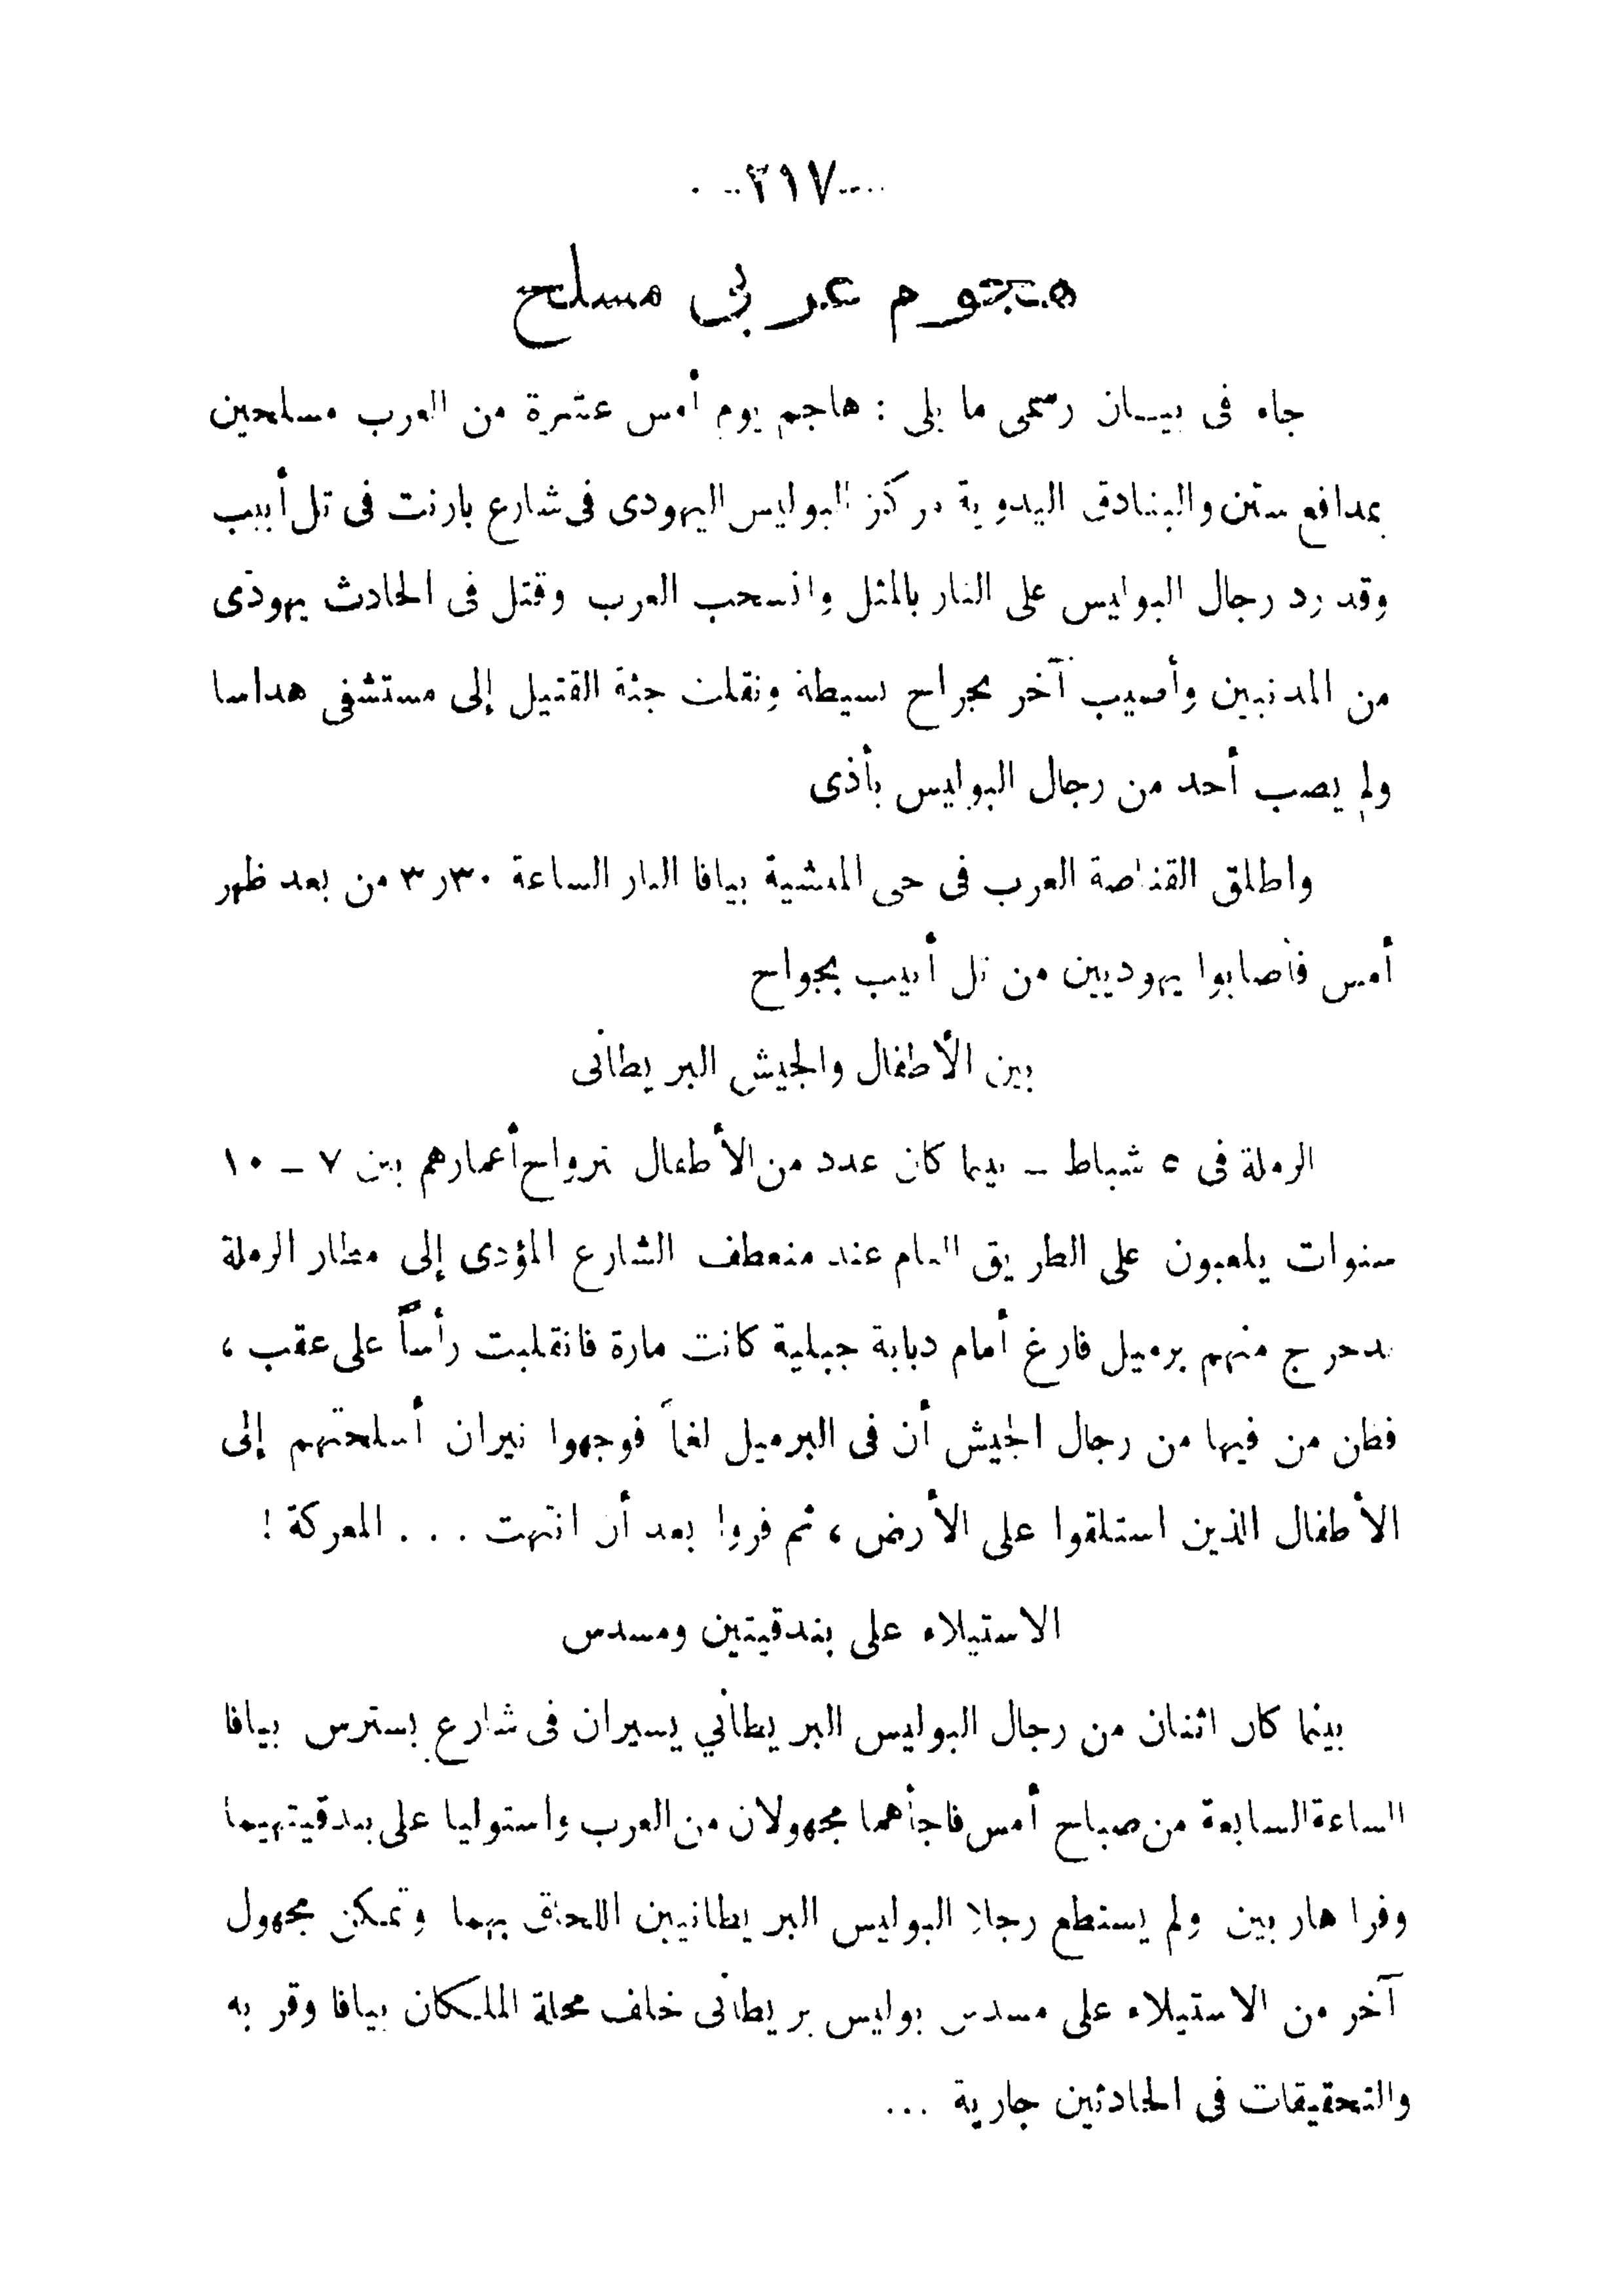 --٣١٧--
هجوم عربى مسلح
جاء فى بيان رسمى ما يلى : هاجم يوم أمس عشرة من العرب مسلحين
بمدافع ستن والبنادق اليدوية مركز البوليس اليهودى فى شارع بارنت فى تل أبيب
وقد رد رجال البوليس على النار بالمثل وانسحب العرب وقتل فى الحادث يهودى
من المدنيين وأصيب آخر بجراح بسيطة ونقلت جثة القتيل إلى مستشفى هداسا
ولم يصب أحد من رجال البوليس بأذى
واطلق القناصة العرب فى حى المنشية بيافا النار الساعة ٣٫٣٠ من بعد ظهر
أمس فأصابوا يهوديين من تل أبيب بجواح
بين الأطفال والجيش البريطانى
الرملة فى ٥ شباط ــ بينما كان عدد من الأطفال تترواح أعمارهم بين ٧ ــ ١٠
سنوات يلعبون على الطريق العام عند منعطف الشارع المؤدى إلى مطار الرملة
تدحرج منهم برميل فارغ أمام دبابة جبلية كانت مارة فانقلبت رأساً على عقب ،
فظن من فيها من رجال الجيش أن فى البرميل لغماً فوجهوا نيران أسلحتهم إلى
الأطفال الذين استلقوا على الأرض ، ثم فروا بعد أن انتهت . . . المعركة !
الاستيلاء على بندقيتين ومسدس
بينما كان اثنان من رجال البوليس البريطاني يسيران فى شارع بسترس بيافا
الساعة السابعة من صباح أمس فاجأهما مجهولان من العرب واستوليا على بندقيتهيما
وفرا هاربين ولم يستطع رجلا البوليس البريطانيين اللحاق بهما وتمكن مجهول
آخر من الاستيلاء على مسدس بوليس بريطانى خلف محلة الملكان بيافا وفر به
والتحقيقات فى الحادثين جارية ...